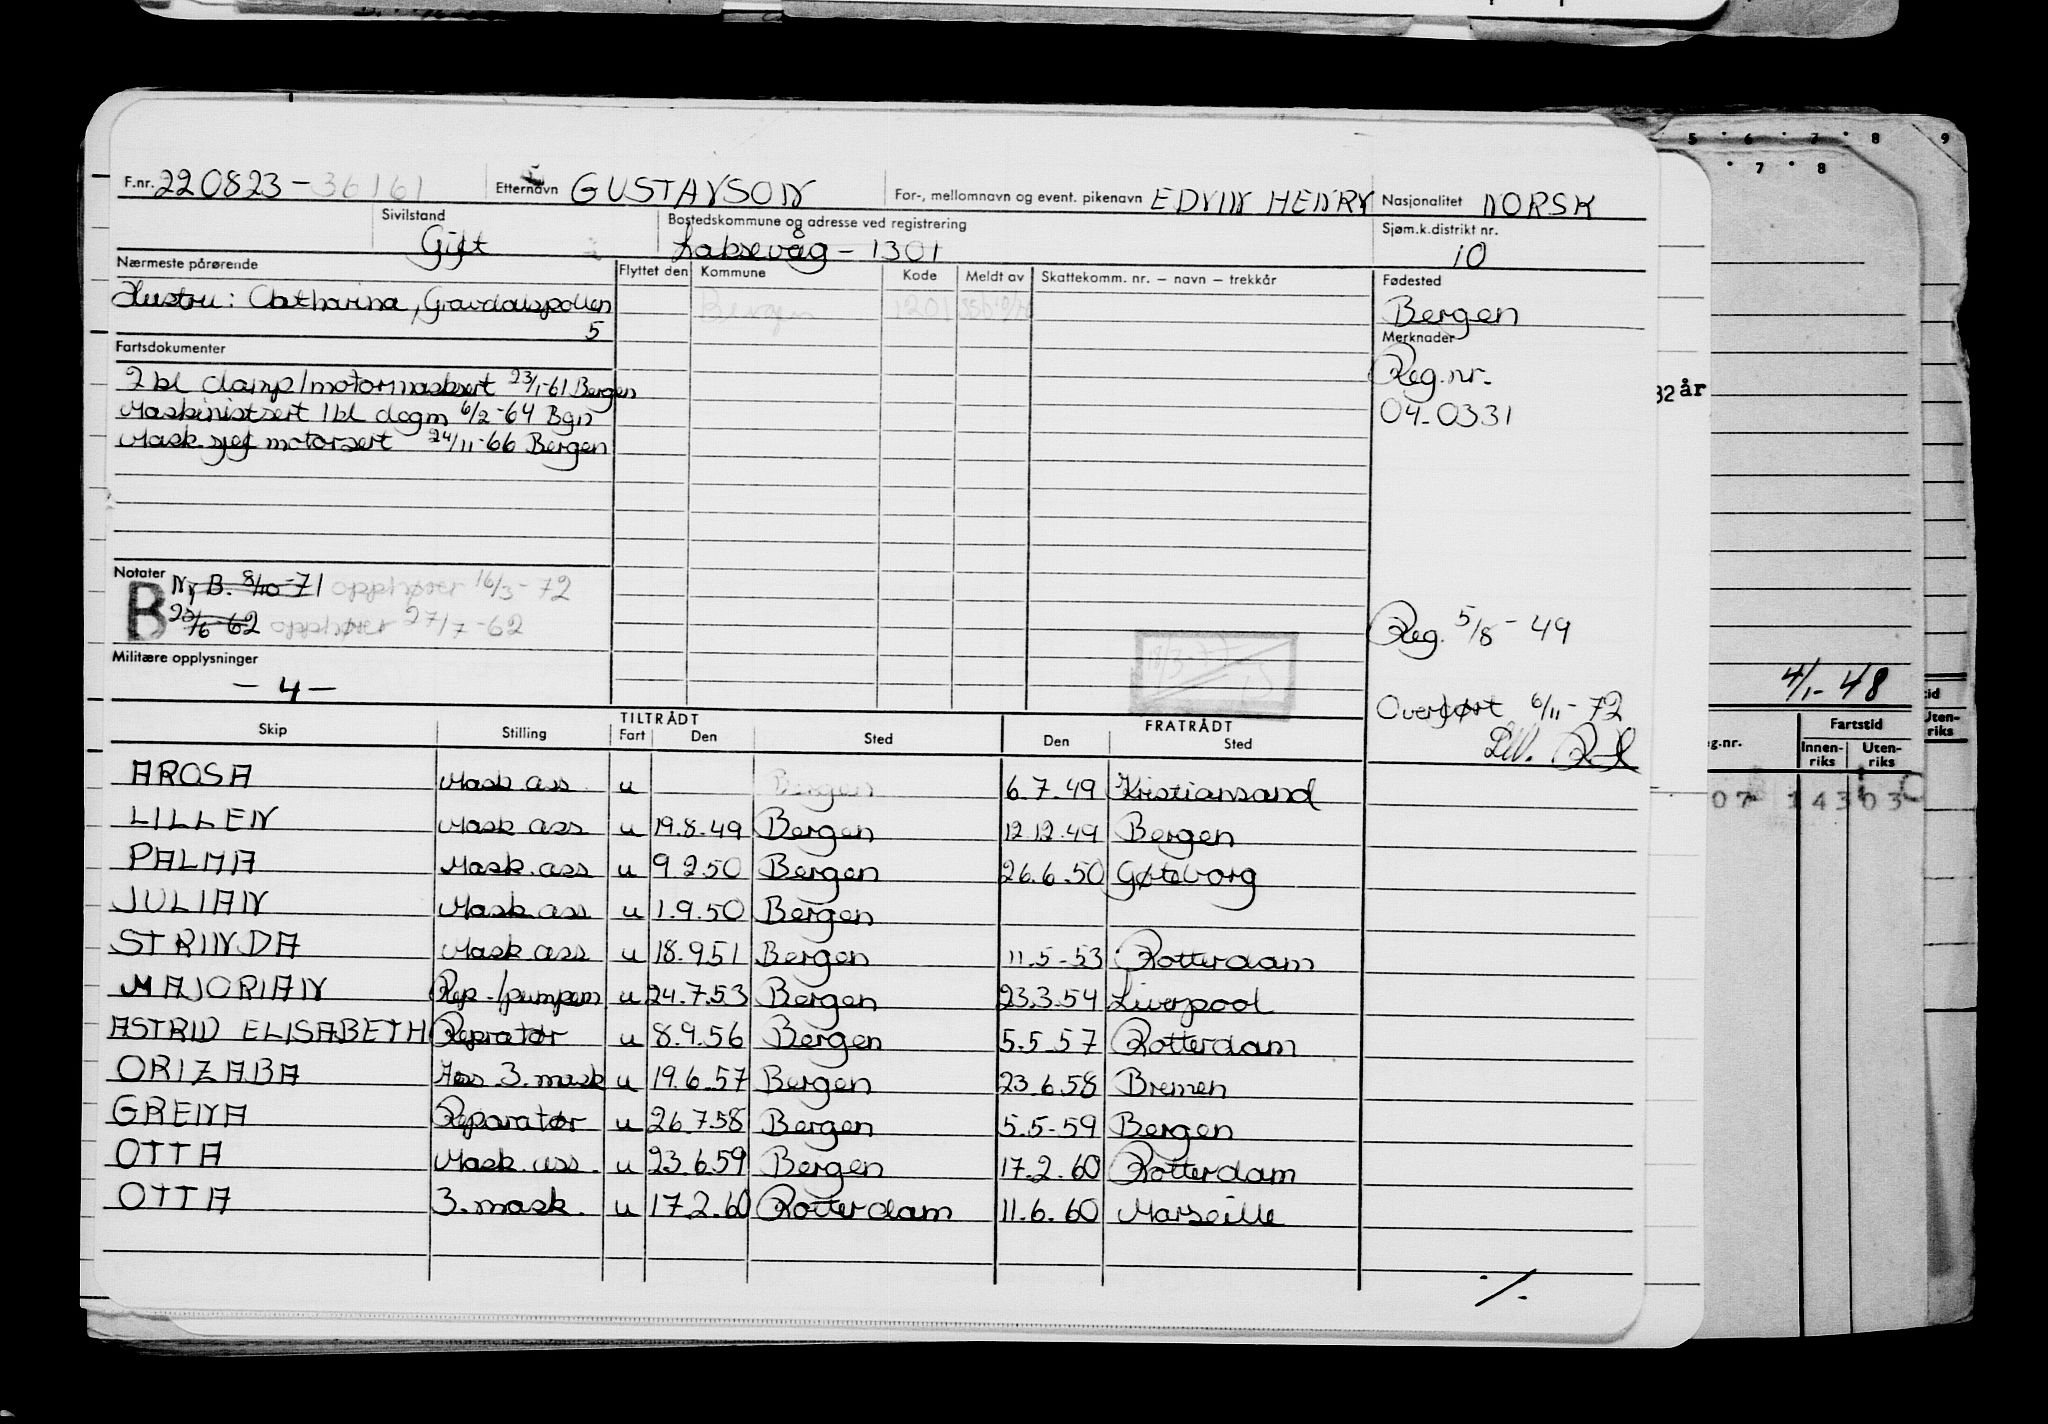 F.nr. 220823-36161 Etternavn GUSTAVSON For-, mellomnavn og event. pikenavn EDVIN HENRY Nasjonalitet NORSK
Sivilstand Bostedskommune og adresse ved registrering Sjøm.k.distrikt nr.
Gift Laksevåg - 1301 10
Nærmeste pårørende Flyttet den Kommune Kode Meldt av Skattekomm. nr. – navn – trekkår Fødested
Hustru: Chatharina, Gravdalspollen Bergen 1201 Bergen
5
Fartsdokumenter Merknader
2 kl damp/motormasksert 23/1-61 Bergen Reg.nr.
Maskinistsert 1 kl dagm 6/2-64 Bgn 04-0331
Mask sjef motorsert 24/11-66 Bergen
32 år
Notater
B Ny B. 8/10-71 opphører 16/3-72
23/6-62 opphører 27/7-62 Reg. 5/8-49
Militære opplysninger 18/3-77
- 4 - 4/1-48
Overført 6/11-72
TILTRÅDT FRATRÅDT
Skip Stilling Fart Den Sted Den Sted
g.nr. Fartstid Innen-riks Uten-riks
AROSA Mask ass u Bergen 6.7.49 Kristiansand
LILLEN Mask ass u 19.8.49 Bergen 12.12.49 Bergen
PALMA Mask.ass u 9.2.50 Bergen 26.6.50 Gøteborg
JULIAN Mask ass u 1.9.50 Bergen
STRINDA Mask ass u 18.9.51 Bergen 11.5-53 Rotterdam
MAJORIAN Rep./pumpem u 24.7.53 Bergen 23.3.54 Liverpool
ASTRID ELISABETH Repratør u 8.9.56 Bergen 5.5.57 Rotterdam
ORIZABA Ass 3.mask u 19.6.57 Bergen 23.6.58 Bremen
GRENA Reparatør u 26.7.58 Bergen 5.5-59 Bergen
OTTA Mask.ass. u 23.6.59 Bergen 17.2.60 Rotterdam
OTTA 3.mask. u 17.2.60 Rotterdam 11.6.60 Marseille
./.